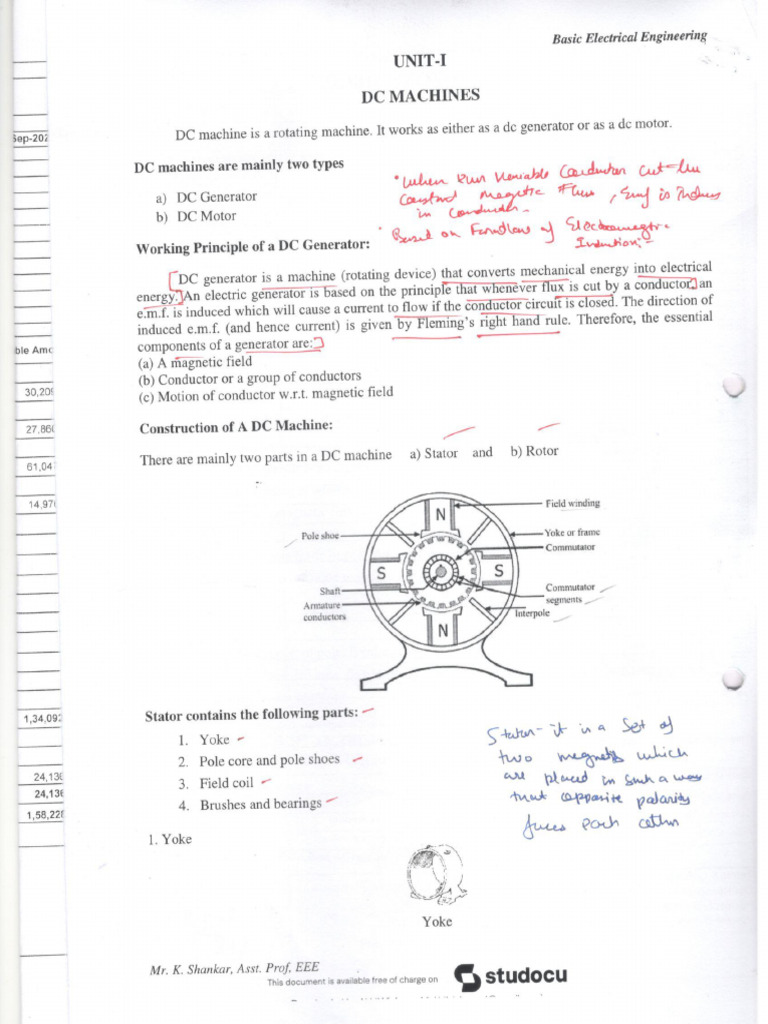 Basic Electrical Engineering
UNIT-I
DC MACHINES
DC machine is a rotating machine. It works as either as a dc generator or as a dc motor.
DC machines are mainly two types
a) DC Generator
b) DC Motor
• When Variable Conductor Cut the
Magnetic Flux, Emf is
in Conductor.
• Based on of
Working Principle of a DC Generator:
DC generator is a machine (rotating device) that converts mechanical energy into electrical
energy. An electric generator is based on the principle that whenever flux is cut by a conductor, an
e.m.f. is induced which will cause a current to flow if the conductor circuit is closed. The direction of
induced e.m.f. (and hence current) is given by Fleming's right hand rule. Therefore, the essential
components of a generator are:
(a) A magnetic field
(b) Conductor or a group of conductors
(c) Motion of conductor w.r.t. magnetic field
Construction of A DC Machine:
There are mainly two parts in a DC machine a) Stator and b) Rotor
Field winding
N
Pole shoe
Yoke or frame
Commutator
S
S
Shaft
Commutator
segments
Armature
conductors
Interpole
N
Stator contains the following parts:
1. Yoke
2. Pole core and pole shoes
3. Field coil
4. Brushes and bearings
Stator - it is a set of
two magnets which
are placed in such a way
that opposite polarity
faces each other
1. Yoke
Yoke
Mr. K. Shankar, Asst. Prof, EEE
This document is available free of charge on
studocu
Sep-202
ble Amo
30,209
27,860
61,04
14,970
1,34,092
24,136
24,136
1,58,228